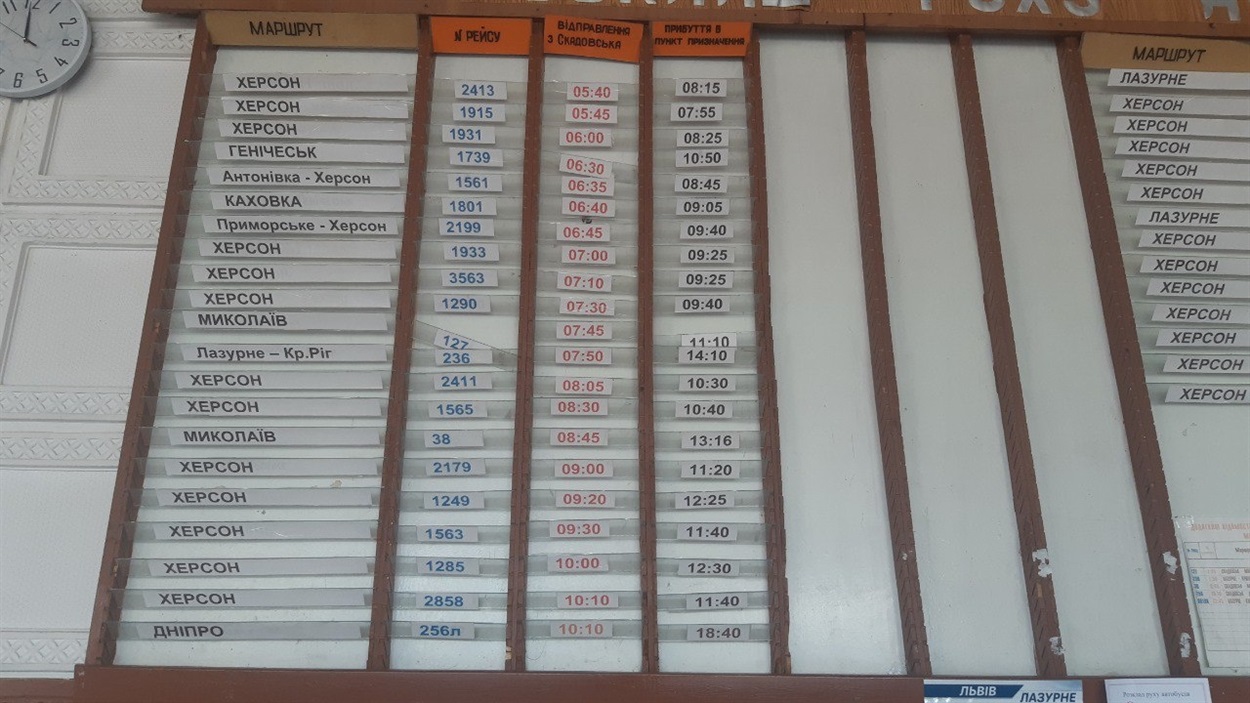 11 12 1 2 3 4 5 6 7
МАРШРУТ N РЕЙСУ ВІДПРАВЛЕННЯ З СКАДОВСЬКА ПРИБУТТЯ В ПУНКТ ПРИЗНАЧЕННЯ
ХЕРСОН 2413 05:40 08:15
ХЕРСОН 1915 05:45 07:55
ХЕРСОН 1931 06:00 08:25
ГЕНІЧЕСЬК 1739 06:30 10:50
Антонівка - Херсон 1561 06:35 08:45
КАХОВКА 1801 06:40 09:05
Приморське - Херсон 2199 06:45 09:40
ХЕРСОН 1933 07:00 09:25
ХЕРСОН 3563 07:10 09:25
ХЕРСОН 1290 07:30 09:40
МИКОЛАЇВ 127 07:45 11:10
Лазурне – Кр.Ріг 236 07:50 14:10
ХЕРСОН 2411 08:05 10:30
ХЕРСОН 1565 08:30 10:40
МИКОЛАЇВ 38 08:45 13:16
ХЕРСОН 2179 09:00 11:20
ХЕРСОН 1249 09:20 12:25
ХЕРСОН 1563 09:30 11:40
ХЕРСОН 1285 10:00 12:30
ХЕРСОН 2858 10:10 11:40
ДНІПРО 256л 10:10 18:40
МАРШРУТ
ЛАЗУРНЕ
ХЕРСОН
ХЕРСОН
ХЕРСОН
ХЕРСОН
ХЕРСОН
ЛАЗУРНЕ
ХЕРСОН
ХЕРСОН
ХЕРСОН
ХЕРСОН
ХЕРСОН
ХЕРСОН
ХЕРСОН
ЛЬВІВ
ЛАЗУРНЕ
Розклад руху автобусів